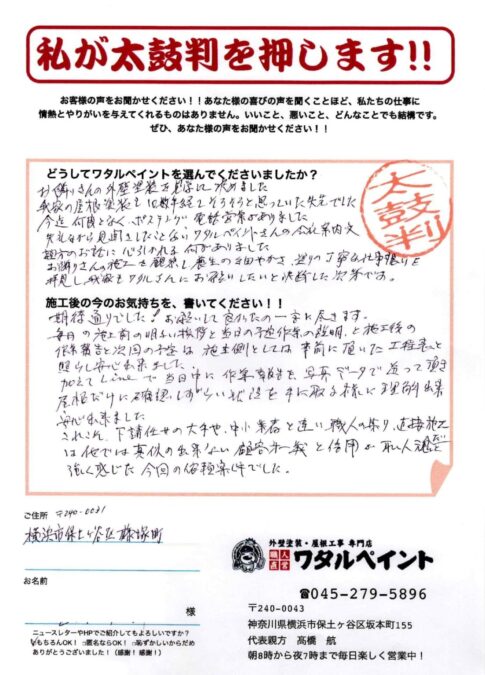 私が太鼓判を押します!!
お客様の声をお聞かせください！！あなた様の喜びの声を聞くことほど、私たちの仕事に
情熱とやりがいを与えてくれるものはありません。いいこと、悪いこと、どんなことでも結構です。
ぜひ、あなた様の声をお聞かせください！！
どうしてワタルペイントを選んでくださいましたか？
太鼓判
お隣りさんの外壁塗装を見て決めました
我家の屋根塗装も10数年経てそろそろと思っていた矢先でした
今迄何度となく、ポスティング 電話営業がありました
ワタルペイントさんの 案内文
心引かれる何かがありました
お隣りさんの施工を観察し養生の細やかさ、塗りの丁寧な仕事振りを
拝見し、我家もワタルさんにお願いしたいと決断した次第です。
施工後の今のお気持ちを、書いてください！！
期待通りでした！お願いして良かったの一言に尽きます。
毎日の施工前の明るい挨拶と当日の予定作業の説明、と施工後の
作業報告と次回の予定は 施主側としては事前に頂いた工程表と
照らし安心出来ました。
加えてLineで当日中に作業報告を写真データで送って頂き
屋根だけに確認しずらい状況を手に取る様に理解出来
安心出来ました
これこれ、下請任せの大手や、中小業者と違い、職人の拘り、直接施工
は他では真似の出来ない顧客第一義と信用が
強く感じた今回の 案件でした。
ご住所 〒240-0031
横浜市保土ヶ谷区藤塚町
お名前
様
ニュースレターやHPでご紹介してもよろしいですか？
もちろんOK！ □匿名ならOK！ □恥ずかしいからだめ
ありがとうございました！（感謝！感謝！）
外壁塗装・屋根工事 専門店
職人直営 ワタルペイント
☎045-279-5896
〒240-0043
神奈川県横浜市保土ヶ谷区坂本町155
代表親方 髙橋 航
朝8時から夜7時まで毎日楽しく営業中！